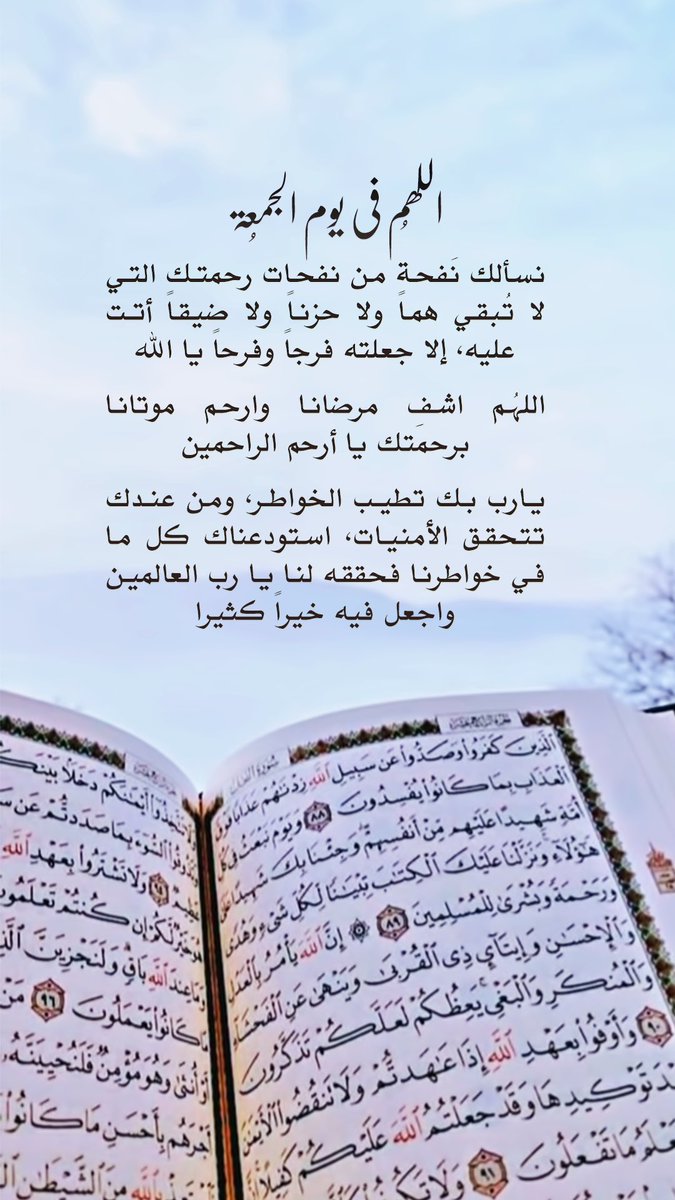 اللهم في يوم الجمعة
نسألك نَفحة من نفحات رحمتك التي
لا تُبقي هماً ولا حزناً ولا ضيقاً أتت
عليه، إلا جعلته فرجاً وفرحاً يا الله
اللهُم اشفِ مرضانا وارحم موتانا
برحمَتك يا أرحم الراحمين
يارب بك تطيب الخواطر، ومن عندك
تتحقق الأمنيات، استودعناك كل ما
في خواطرنا فحققه لنا يا رب العالمين
واجعل فيه خيراً كثيرا
ٱلَّذِينَ كَفَرُوا۟ وَصَدُّوا۟ عَن سَبِيلِ ٱللَّهِ زِدْنَٰهُمْ عَذَابًا فَوْقَ
ٱلْعَذَابِ بِمَا كَانُوا۟ يُفْسِدُونَ ٨٨ وَيَوْمَ نَبْعَثُ فِى كُلِّ
أُمَّةٍ شَهِيدًا عَلَيْهِم مِّنْ أَنفُسِهِمْ وَجِئْنَا بِكَ شَهِيدًا عَلَىٰ
هَٰٓؤُلَآءِ وَنَزَّلْنَا عَلَيْكَ ٱلْكِتَٰبَ تِبْيَٰنًا لِّكُلِّ شَىْءٍ وَهُدًى
وَرَحْمَةً وَبُشْرَىٰ لِلْمُسْلِمِينَ ٨٩ إِنَّ ٱللَّهَ يَأْمُرُ بِٱلْعَدْلِ
وَٱلْإِحْسَٰنِ وَإِيتَآئِ ذِى ٱلْقُرْبَىٰ وَيَنْهَىٰ عَنِ ٱلْفَحْشَآءِ
وَٱلْمُنكَرِ وَٱلْبَغْىِ يَعِظُكُمْ لَعَلَّكُمْ تَذَكَّرُونَ ٩٠
وَأَوْفُوا۟ بِعَهْدِ ٱللَّهِ إِذَا عَٰهَدتُّمْ وَلَا تَنقُضُوا۟ ٱلْأَيْمَٰنَ
بَعْدَ تَوْكِيدِهَا وَقَدْ جَعَلْتُمُ ٱللَّهَ عَلَيْكُمْ كَفِيلًا إِنَّ
مَا تَفْعَلُونَ ٩١ وَلَا
تَتَّخِذُوٓا۟ أَيْمَٰنَكُمْ دَخَلًۢا بَيْنَكُمْ
ٱلسُّوٓءَ بِمَا صَدَدتُّمْ عَن
وَلَا تَشْتَرُوا۟ بِعَهْدِ ٱللَّهِ
إِن كُنتُمْ تَعْلَمُونَ
وَمَا عِندَ ٱللَّهِ بَاقٍ وَلَنَجْزِيَنَّ
مَا كَانُوا۟ يَعْمَلُونَ ٩٦ مَنْ
أَوْ أُنثَىٰ وَهُوَ مُؤْمِنٌ فَلَنُحْيِيَنَّهُۥ
أَجْرَهُم بِأَحْسَنِ مَا كَانُوا۟
بِٱللَّهِ مِنَ ٱلشَّيْطَٰنِ